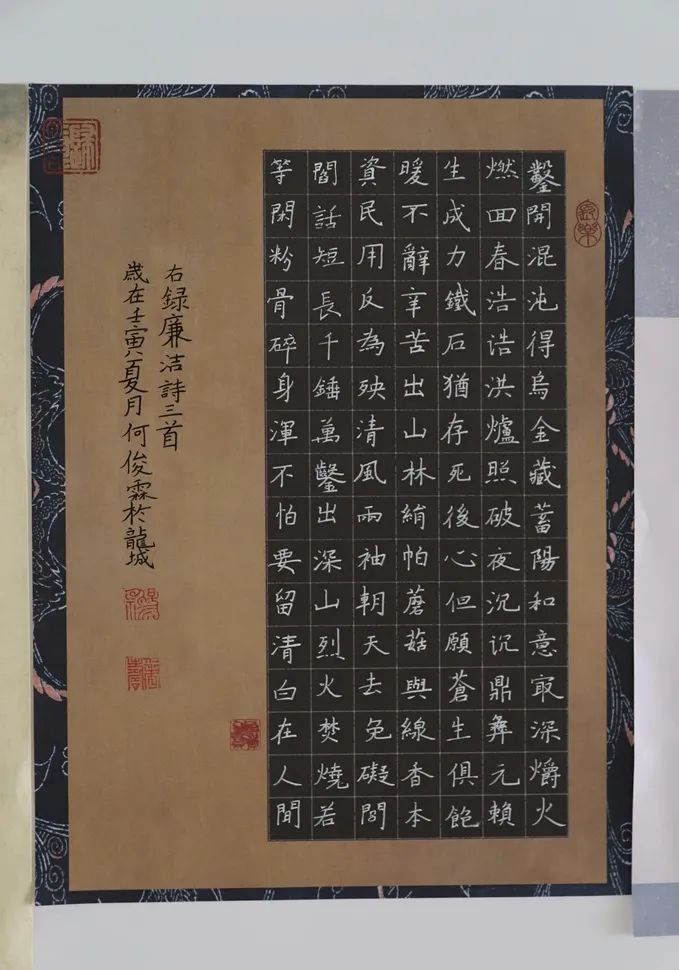 鑿開混沌得烏金藏蓄陽和意冣深爝火
燃回春浩浩洪爐照破夜沉沉鼎彝元賴
生成力鐵石猶存死後心但願蒼生俱飽
暖不辭辛苦出山林絹帕蘑菇與線香本
資民用反為殃清風兩袖朝天去免礙閭
閻話短長千錘萬鑿出深山烈火焚燒若
等閑粉骨碎身渾不怕要留清白在人間
右録廉洁詩三首
歲在壬寅夏月何俊霖於龍城